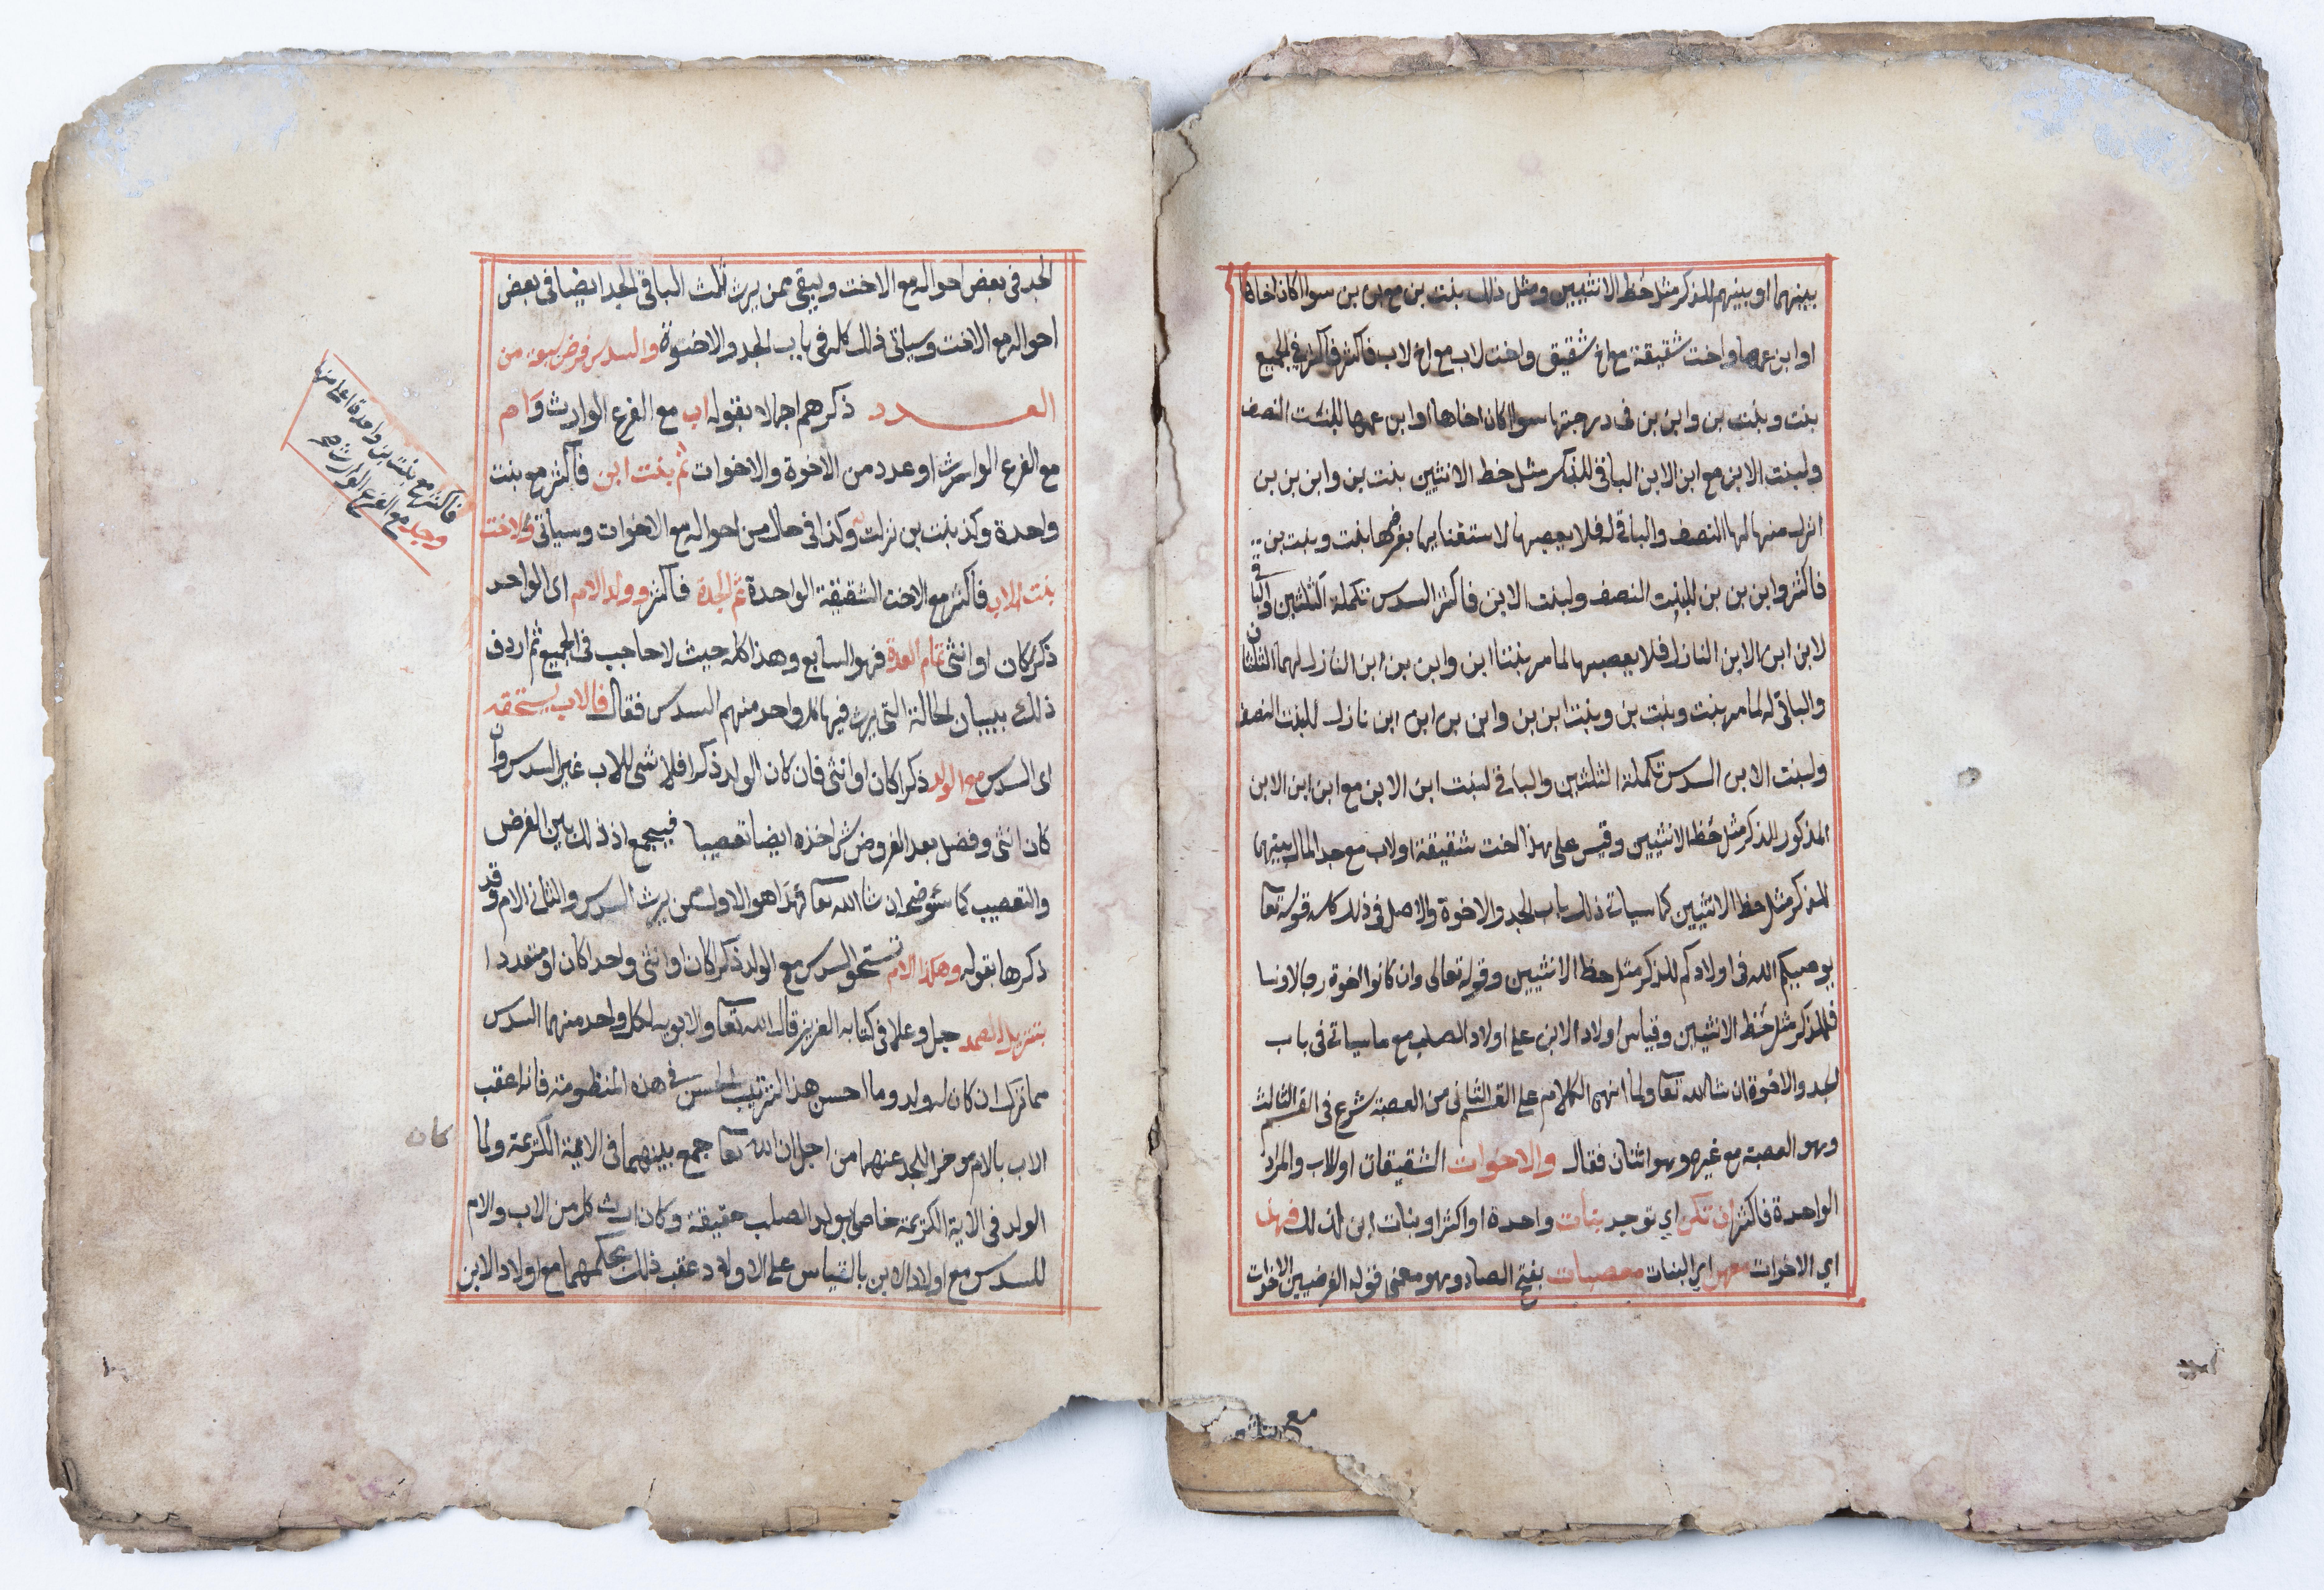 بينهما او بينهم للذكر مثل حظ الانثيين ومثل ذلك بنت بن مع بن بن سوا كان اخاها
او ابن عمها واخت شقيقة مع اخ شقيق واخت لاب مع اخ لاب فاكثر فاكثر في الجميع
بنت وبنت بن وابن بن فى درجتها سوا كان اخاها او ابن عمها للبنت النصف
ولبنت الابن مع ابن الابن الباقى للذكر مثل حظ الانثيين بنت بن وابن بن بن
انزل منها لها النصف والباقى له فلا يعصبها لاستغنايها بفرضها بنت وبنت بن
فاكثر وابن بن بن للبنت النصف ولبنت الابن فاكثر السدس تكملة الثلثين والباقى
لابن ابن الابن النازل فلا يعصبها لما مر بنتا ابن وابن بن ابن النازل لهما الثلثان
والباقى له لما مر بنت وبنت بن وبنت ابن بن وابن بن ابن ابن نازل للبنت النصف
ولبنت الابن السدس تكملة الثلثين والباقى لبنت ابن الابن مع ابن ابن الابن
المذكور للذكر مثل حظ الانثيين وقيس على هذا اخت شقيقة او لاب مع جد المال بينهما
للذكر مثل حظ الانثيين كما سياتى ذلك باب الجد والاخوة والاصل فى ذلك كله قوله تعا
يوصيكم الله فى اولادكم للذكر مثل حظ الانثيين وقوله تعالى وان كانوا اخوة رجالا ونسا
فللذكر مثل حظ الانثيين وقياس اولاد الابن على اولاد الصلب مع ما سياتى فى باب
الجد والاخوة ان شا الله تعا ولما انهى الكلام على القسم الثانى من العصبة شرع فى القسم الثالث
وهو العصبة مع غيره وهو اثنان فقال والاخوات الشقيقات او للاب والمراد
الواحدة فاكثر ان تكن اي توجد بنات واحدة او اكثر او بنات ابن كذلك فهن
اي الاخوات معهن اي البنات معصبات بفتح الصاد وهو معنى قوله الفرضيين الاخوات
مع
الجد فى بعض احواله مع الاخت ويبقى ممن يرث ثلث الباقى الجد ايضا فى بعض
احواله مع الاخت وسياتى ذلك كله فى باب الجد والاخوة والسدس فرض سبعة من
العدد ذكرهم اجمالا بقوله اب مع الفرع الوارث وام
مع الفرع الوارث او عدد من الاخوة والاخوات ثم بنت ابن فاكثر مع بنت
واحدة وكذ بنت بن نزلت وكذا فى حال من احواله مع الاخوات وسياتى والاخت
بنت الاب فاكثر مع الاخت الشقيقة الواحدة ثم الجدة فاكثر وولد الام اى الواحد
ذكرا كان او انثى تمام العدة فهو السابع وهذا كله حيث لا حاجب فى الجميع ثم اردف
ذلك ببيان الحالة التى يرث فيها كل واحد منهم السدس فقال فالاب يستحقه
اى السدس مع الولد ذكرا كان او انثى فان كان الولد ذكرا فلا شى للاب غير السدس وان
كان انثى وفضل بعد الفروض شى اخذه ايضا تعصيبا فيجمع اذ ذلك بين الفرض
والتعصيب كما سنوضحه ان شا الله تعا فهذا هو الاول ممن يرث السدس والثانى الام وقد
ذكرها بقوله وهكذا الام تستحق السدس مع الولد ذكرا كان او انثى واحدا كان او متعددا
بتنزيل الصمد جل وعلا فى كتابه العزيز قال الله تعا ولابويه لكل واحد منهما السدس
مما ترك ان كان له ولد وما احسن هذا الترتيب الحسن فى هذه المنظومة فانه اعقب
الاب بالام موخرا للجد عنهما من اجل ان الله تعا جمع بينهما فى الاية الكريمة ولما
كان
الولد فى الاية الكريمة خاص بولد الصلب حقيقة وكان ارث كل من الاب والام
للسدس مع اولاد الابن بالقياس على الاولاد عقب ذلك بحكمهما مع اولاد الابن
فاكثر مع بنت بن واحدة اعلى منها
وجد مع الفرع الوارث صح